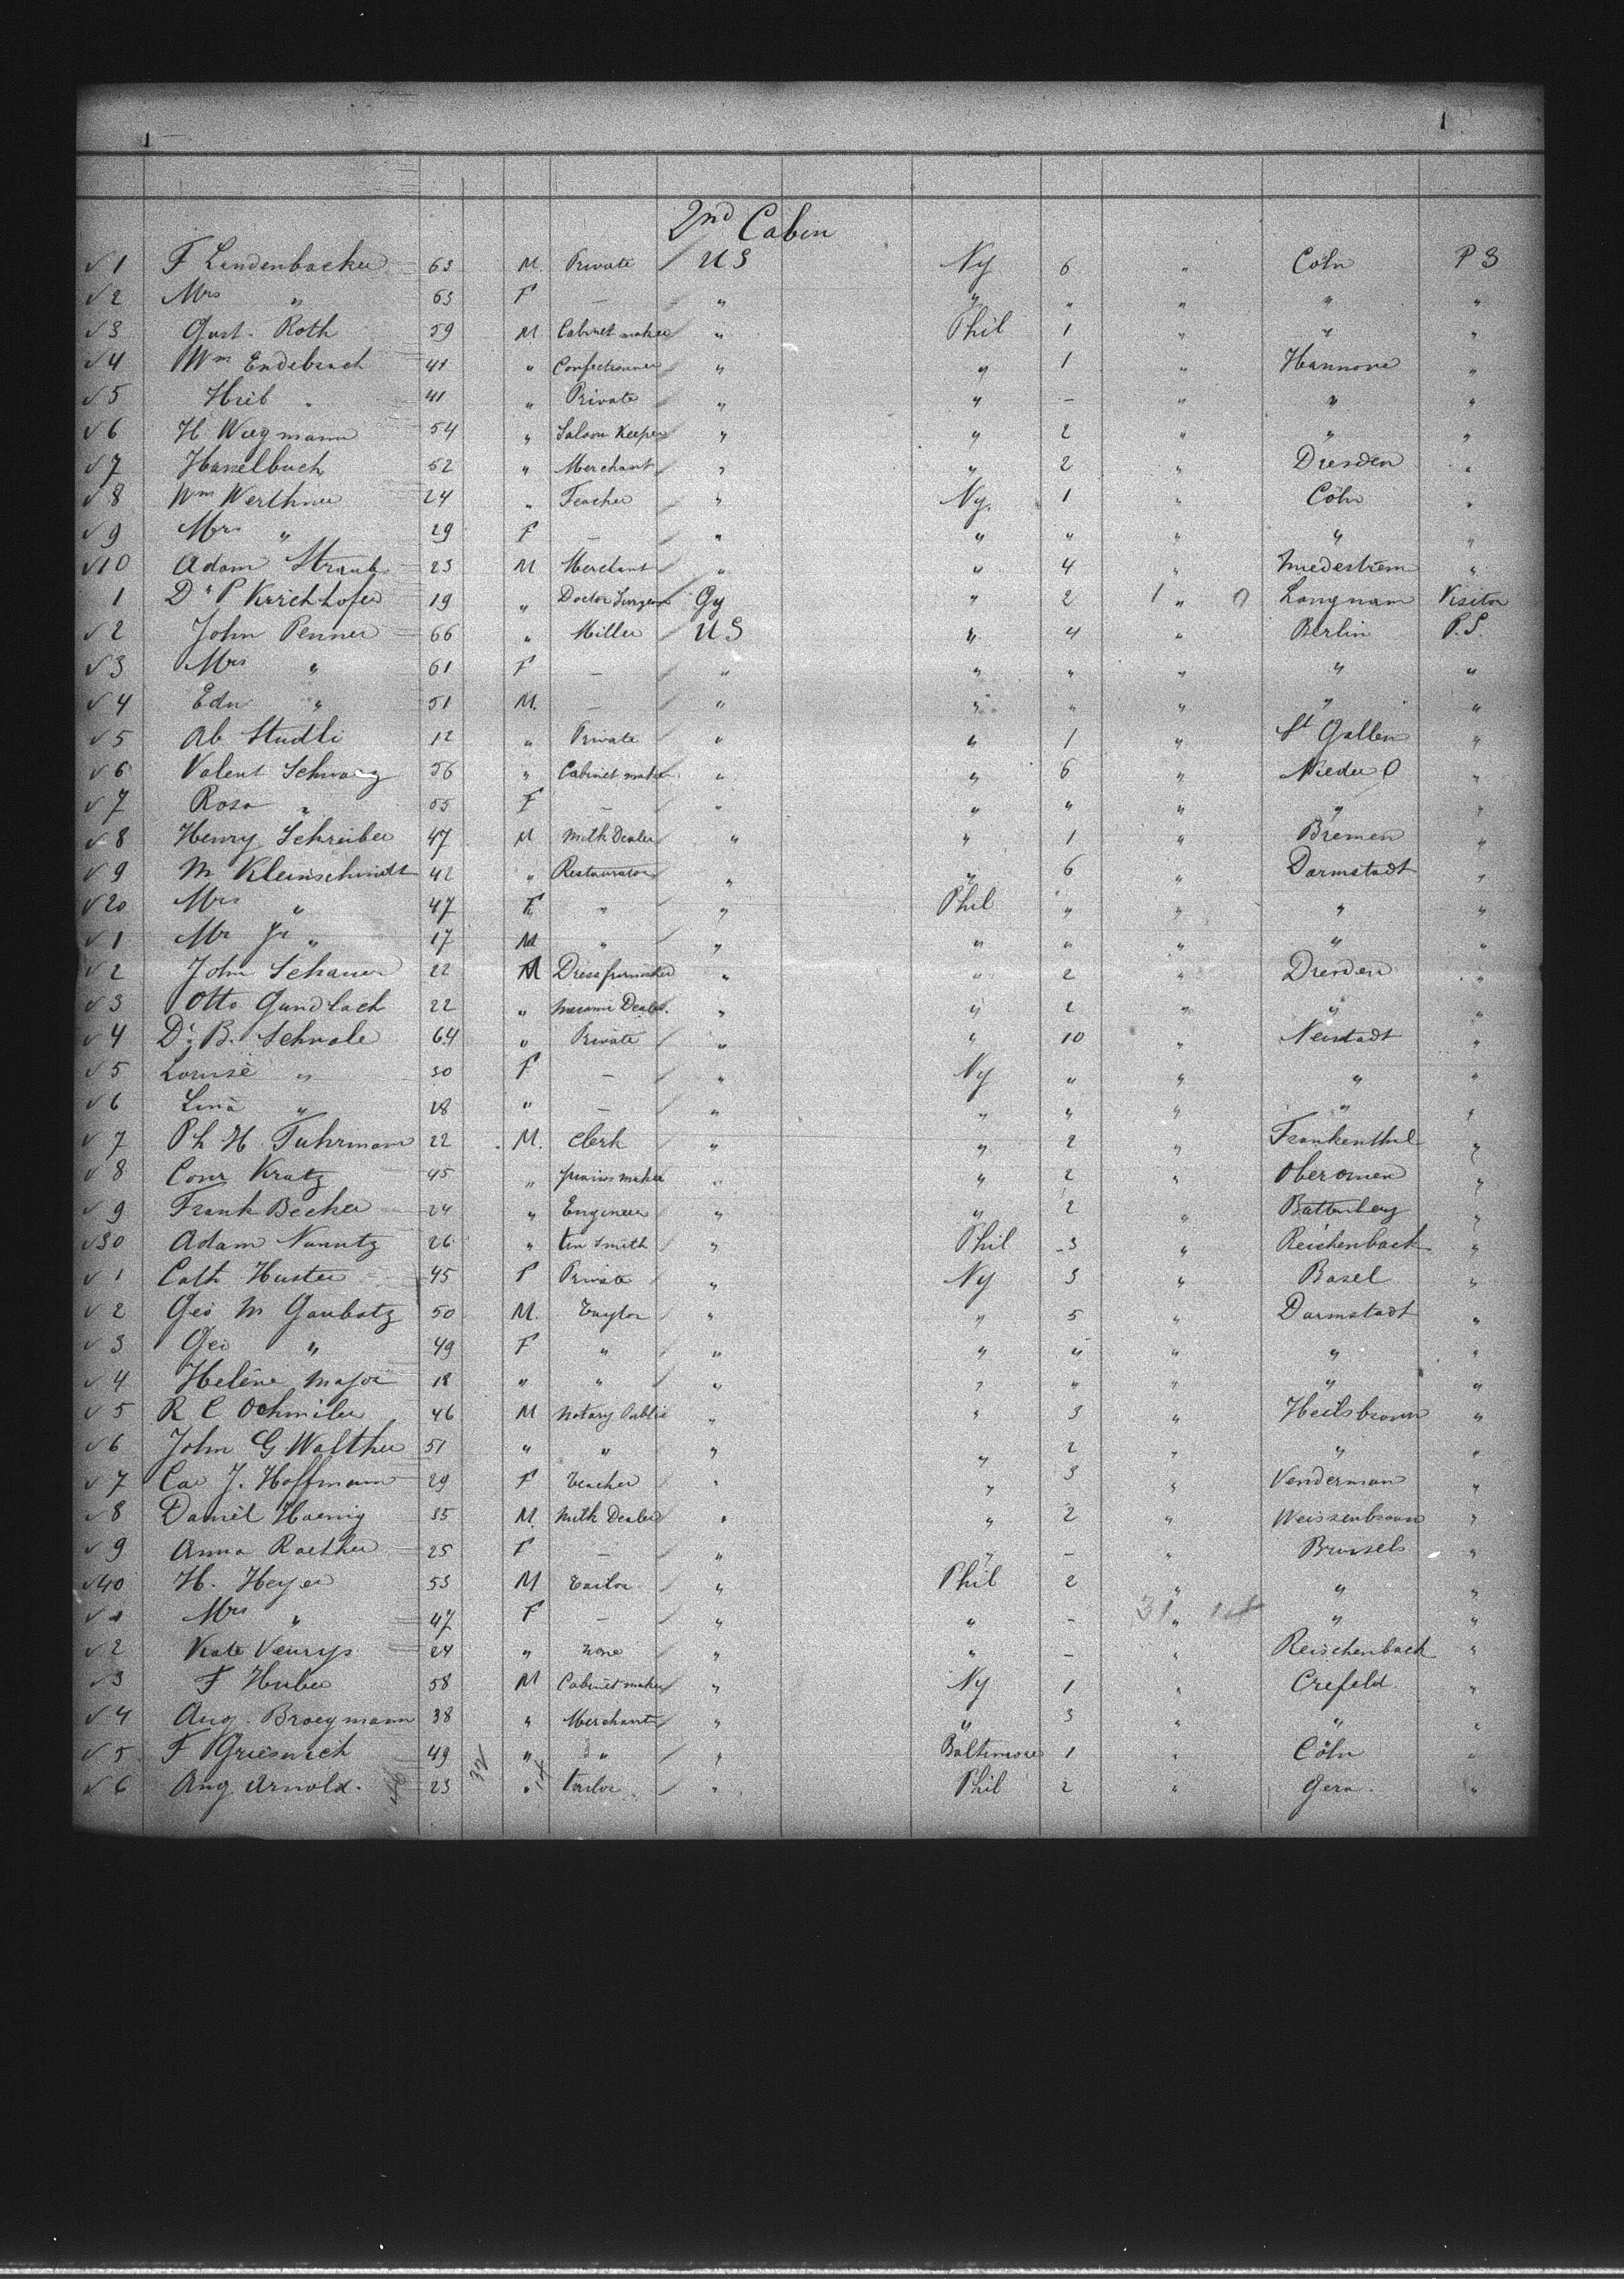 1 1
2nd Cabin
1 F Lindenbacker 63 M. Private US Ny 6 " Cöln P S
2 Mrs " 63 F — " " " " " "
3 Gust. Roth 59 M Cabinet maker " Phil 1 " " "
4 Wm Endebrach 41 " Confectioner " " 1 " Hannover "
5 Heib " 41 " Private " " — " " "
6 H Wiegmann 54 " Saloon Keeper " " 2 " " "
7 Hasselbuch 52 " Merchant " " 2 " Dresden "
8 Wm Werthner 24 " Teacher " Ny. 1 " Cöln "
9 Mrs " 29 F — " " " " " "
10 Adam Straub 23 M Merchant " " 4 " "
1 Dr P Kirchhofer 19 " Doctor Surgeon Gy " 2 1 " 0 Langnam Visitor
2 John Penner 66 " Miller US " 4 " Berlin P.S.
3 Mrs " 61 F — " " " " " "
4 Edw " 51 M. — " " " " " "
5 Ab Studli 12 " Private " " 1 " St Gallen "
6 Valent Schwarz 56 " Cabinet maker " " 6 " Nieder O "
7 Rosa " 55 F — " " " " " "
8 Henry Schreiber 47 M Milk Dealer " " 1 " Bremen "
9 M Kleinschmidt 42 " Restaurator " " 6 " Darmstadt "
20 Mrs " 47 F " " Phil " " " "
1 Mr Jr " 17 M " " " " " " "
2 John Schauer 22 M Dress furnisher " " 2 " Dresden "
3 Otto Gundlach 22 " Dealer. " " 2 " " "
4 Dr. B. Schvale 64 " Private " " 10 " Neustadt "
5 Louise " 30 F — " Ny " " " "
6 Lina " 28 " — " " " " " "
7 Ph H Fuhrmann 22 M. Clerk " " 2 " Frankenthal "
8 Conr Kratz 45 " maker " " 2 " Oberomen "
9 Frank Becker 24 " Engineer " " 2 " Battenberg "
30 Adam Nanntz 26 " tin Smith " Phil 3 " Reichenbach "
1 Cath Huster 45 F Private " Ny 3 " Basel "
2 Geo M Gaubatz 50 M. Taylor " " 5 " Darmstadt "
3 Geo " 49 F " " " " " " "
4 Helène Major 18 " " " " " " " "
5 R C Ochmiler 46 M Notary Public " " 3 " Heilsbronn "
6 John G Walther 51 " " " " 2 " " "
7 Ca J. Hoffmann 29 F teacher " " 3 " Venderman "
8 Daniel Haenig 35 M. Milk Dealer " " 2 " Weissenbronn "
9 Anna Raether 25 F — " " — " Brussels "
40 H. Heyer 53 M Tailor " Phil 2 " " "
1 Mrs " 47 F — " " — " " "
2 Kate Venrys 24 " none " " — " Reischenbach "
3 F Huber 58 M Cabinet maker " Ny 1 " Crefeld "
4 Aug. Broegmann 38 " Merchant " " 3 " " "
5 F Griesnich 49 " " " Baltimore 1 " Cöln "
6 Aug Arnold. 23 " tailor " Phil 2 " Gera. "